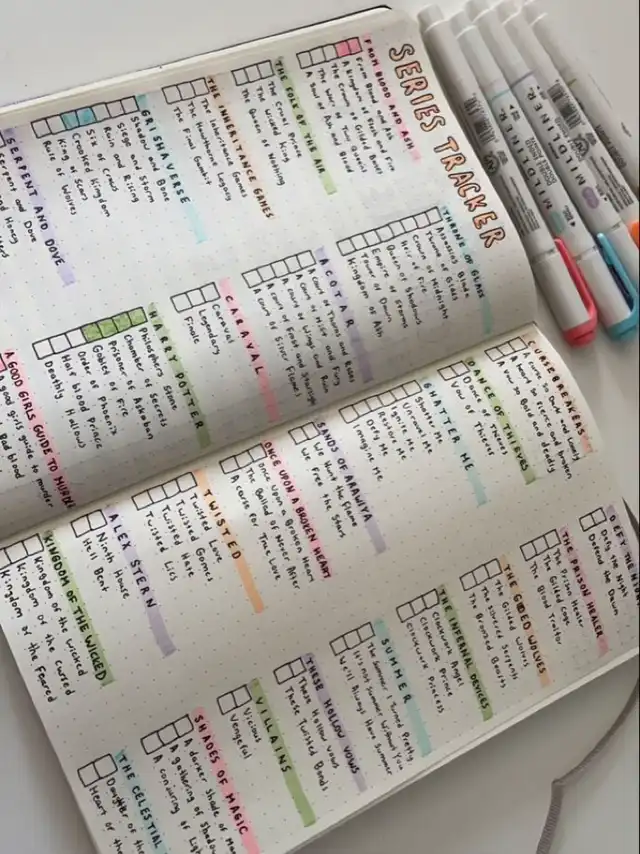 SERIES TRACKER
FROM BLOOD AND ASH
From Blood and Ash
THE FOLK OF THE AIR
The Cruel Prince
The Wicked King
The Queen of Nothing
THE INHERITANCE GAMES
The Inheritance Games
The Hawthorne Legacy
The Final Gambit
GRISHAVERSE
Shadow and Bone
Siege and Storm
Ruin and Rising
Six of Crows
Crooked Kingdom
King of Scars
Rule of Wolves
SERPENT AND DOVE
Serpent and Dove
THRONE OF GLASS
Assassins Blade
Throne of Glass
Crown of Midnight
Heir of Fire
Queen of Shadows
Empire of Storms
Tower of Dawn
Kingdom of Ash
ACOTAR
A Court of Thorns and Roses
A Court of Mist and Fury
A Court of Wings and Ruin
A Court of Frost and Starlight
A Court of Silver Flames
CARAVAL
Caraval
Legendary
Finale
HARRY POTTER
Philosophers Stone
Chamber of Secrets
Prisoner of Azkaban
Goblet of Fire
Order of Phoenix
Half Blood Prince
Deathly Hallows
A GOOD GIRLS GUIDE TO MURDER
A good girls guide to murder
CURSEBREAKERS
DANCE OF THIEVES
Dance of Thieves
Vow of Thieves
SHATTER ME
Shatter Me
Unravel Me
Ignite Me
Restore Me
Defy Me
Imagine Me
SANDS OF ARAWIYA
We Hunt the Flame
We Free the Stars
ONCE UPON A BROKEN HEART
Once Upon a Broken Heart
The Ballad of Never After
A Curse For True Love
TWISTED
Twisted Love
Twisted Games
Twisted Hate
Twisted Lies
ALEX STERN
Ninth House
Hell Bent
KINGDOM OF THE WICKED
Kingdom of the Wicked
Kingdom of the Cursed
Kingdom of the Feared
Defy the Night
Defend the Dawn
THE PRISON HEALER
The Prison Healer
The Gilded Cage
The Blood Traitor
THE GILDED WOLVES
The Gilded Wolves
The Silvered Serpents
The Bronzed Beasts
THE INFERNAL DEVICES
Clockwork Angel
Clockwork Prince
Clockwork Princess
SUMMER
The Summer I Turned Pretty
Its Not Summer Without You
We'll Always Have Summer
THESE HOLLOW VOWS
These Hollow Vows
These Twisted Bonds
VILLAINS
Vicious
Vengeful
SHADES OF MAGIC
A darker shade of
A gathering of Shadows
A conjuring of Light
THE CELESTIAL
Daughter of the
Heart of the
MILDLINER
MILDLINER
MILDLINER